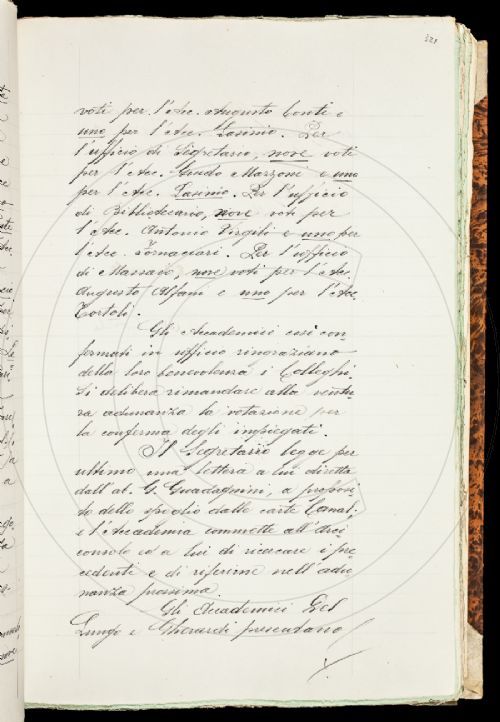 voti per l'Acc. Augusto Conti e
uno per l'Acc. Tasinio. Per
l'ufficio di Segretario, nove voti
per l'Acc. Guido Mazzoni e uno
per l'Acc. Tasinio. Per l'ufficio
di Bibliotecario, nove voti per
l'Acc. Antonio Virgili e uno per
l'Acc. Fornaciari. Per l'ufficio
di Massaio, nove voti per l'Acc.
Augusto Alfani e uno per l'Acc.
Tortoli.
Gli Accademici così con-
fermati in ufficio ringraziano
della loro benevolenza i Colleghi.
Si delibera rimandare alla ventu-
ra adunanza la votazione per
la conferma degli impiegati.
Il Segretario legge per
ultimo una lettera a lui diretta
dall'ab. G. Guadagnini, a proposi-
to dello spoglio dalle carte
e l'Accademia commette all'Arci-
consolo ed a lui di ricercare i pre-
cedenti e di riferirne nell'adu-
nanza prossima.
Gli Accademici Del
Lungo e Gherardi presentano